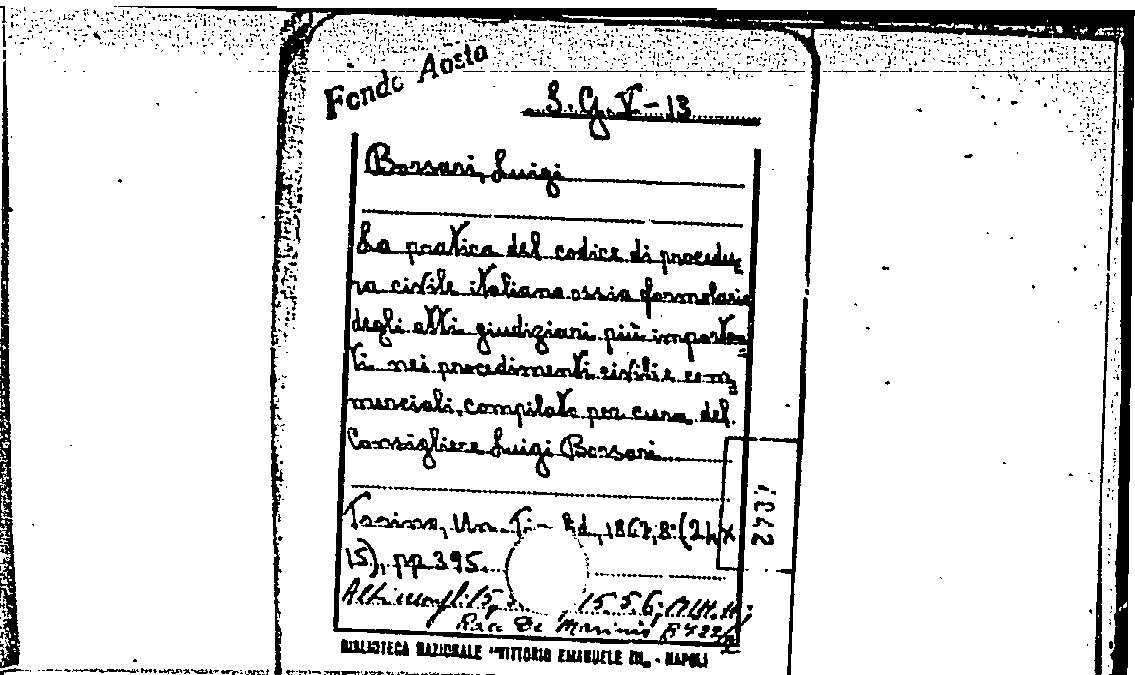 Fondo Aosta
S.G.V-13
Borsari, Luigi
La pratica del codice di procedu=
ra civile italiano ossia formulario
degli atti giudiziari più importan=
ti nei procedimenti civili e com=
merciali, compilato per cura del
Consigliere Luigi Borsari
Torino, Un. Ti- Ed., 1867, 8: (24x
15), pp 395.
15 5 6;
Race De Marinis
BIBLIOTECA NAZIONALE "VITTORIO EMANUELE III„ - NAPOLI